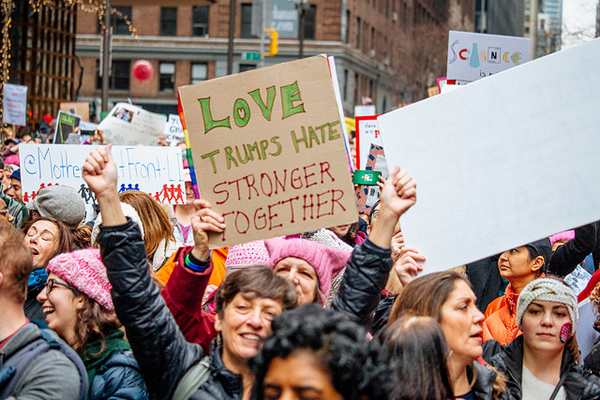 LOVE
TRUMPS HATE
STRONGER
TOGETHER
SCIENCE